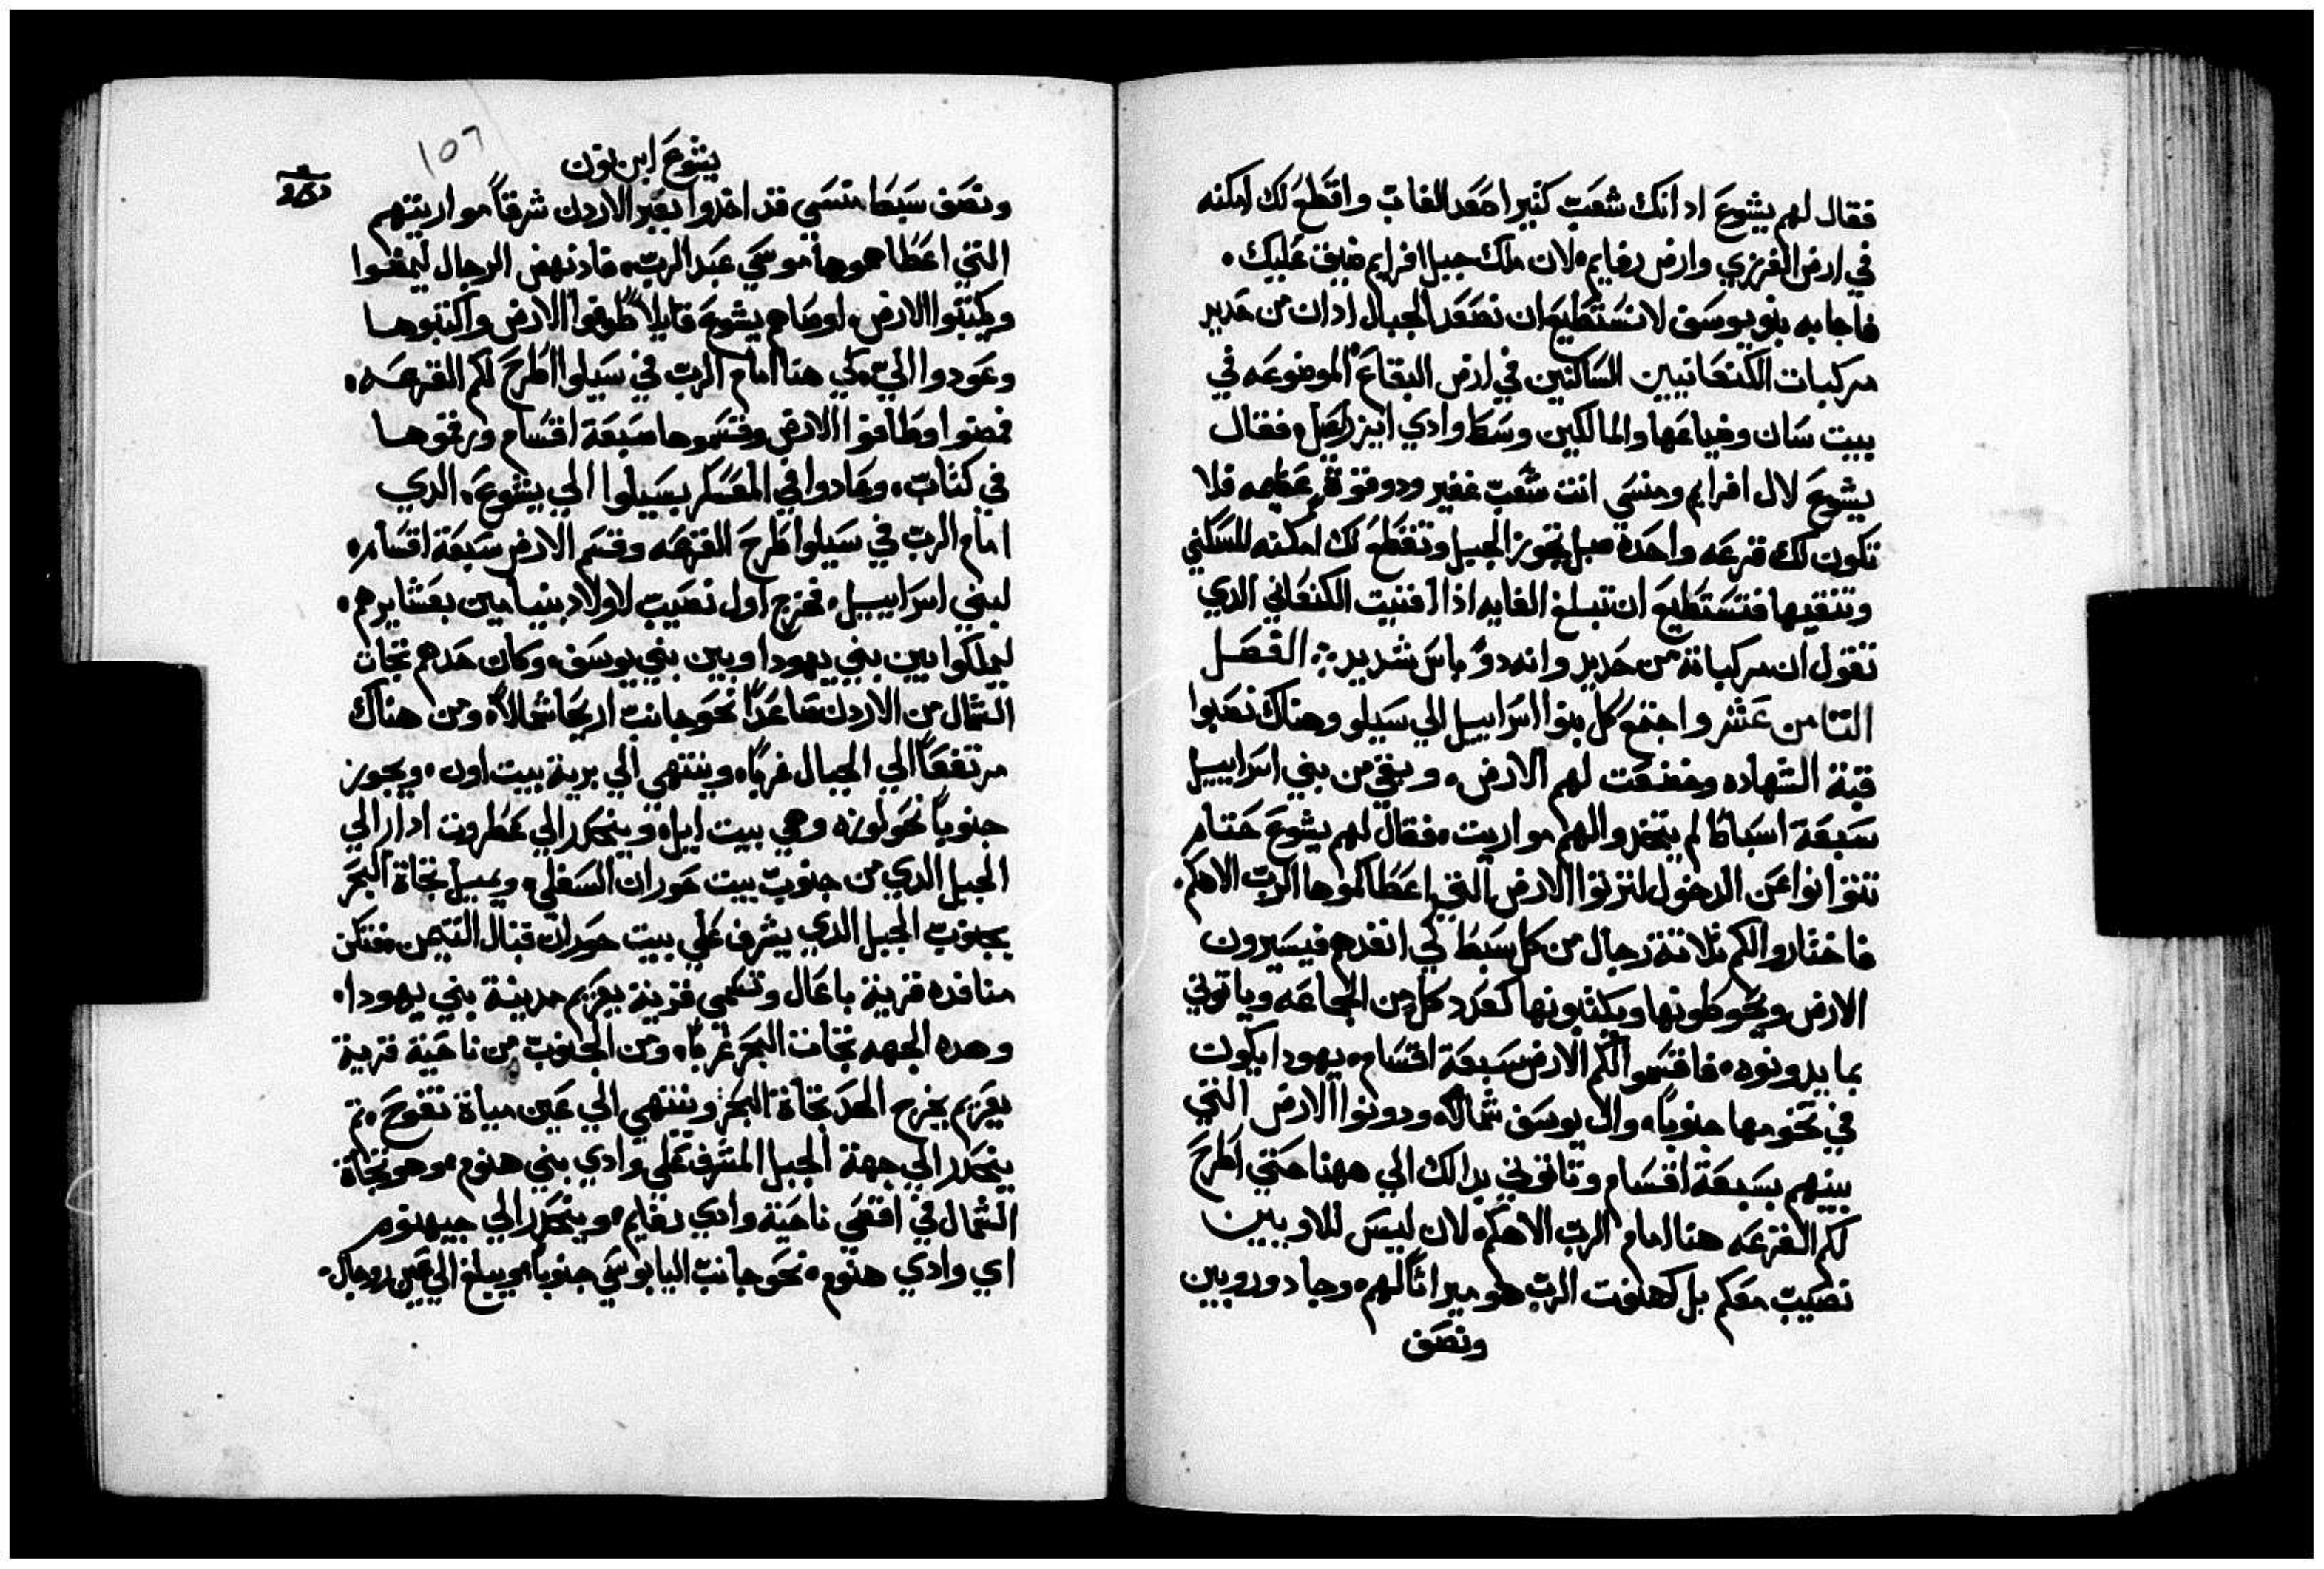 فقال لهم يشوع اد انك شعب كثير اصعد الغاب واقطع لك امكنه
في ارض الفرزي وارض رفايم لان ملك جبل افرايم ضيق عليك
فاجابه بنو يوسف لا نستطيع ان نصعد الجبال اد ان من حديد
مركبات الكنعانيين الساكنين في ارض البقاع الموضوعه في
بيت سان وضياعها والمالكين وسط وادي ايزراعيل فقال
يشوع لال افرايم ومنسي انت شعب غفير ودو قوة عظيمه فلا
تكون لك قرعه واحدة مبل تجوز الجبل وتقطع لك امكنه للسكني
وتنقيها فتستطيع ان تبلغ الغايه اذا افنيت الكنعاني الدي
تقول ان مركباته من حديد وانه دو باس شديد الفصل
التامن عشر واجتمع كل بنوا اسراييل الي سيلو وهناك نصبوا
قبة الشهاده وخضعت لهم الارض وبقي من بني اسراييل
سبعة اسباطا لم يتخدوا لهم مواريت فقال لهم يشوع حتام
تتوانوا عن الدخول لترتوا الارض التي اعطاكموها الرب الاهكم
فاختاروا لكم تلاتة رجال من كل سبط لكي انفدهم فيسيرون
الارض ويحوطونها ويكتبونها كعدد كل من الجماعه وياتوني
بما يدونوه فاقتسموا لكم الارض سبعة اقسام يهودا يكون
في تخومها جنوبا وال يوسف شمالا ودونوا الارض التي
بينهم بسبعة اقسام وتاتوني بدالك الي ههنا حتي اطرح
لكم القرعه هنا امام الرب الاهكم لان ليس للاويين
نصيب معكم بل كهنوت الرب هو ميراتا لهم وجاد وروبين
ونصف
يشوع ابن نون
١٥٦
ونصف سبط منسي قد اخدوا بعبر الاردن شرقا مواريتهم
التي اعطاهموها موسي عبد الرب فاد نهض الرجال ليمضوا
ويكتبوا الارض اوصاهم يشوع قايلا طوفوا الارض واكتبوها
وعودوا الي لكي هنا امام الرب في سيلوا اطرح لكم القرعه
فمضوا وطافوا الارض وقسموها سبعة اقسام ورقموها
في كتاب وعادوا في المعسكر بسيلوا الي يشوع الدي
امام الرب في سيلوا طرح القرعه وقسم الارض سبعة اقسام
لبني اسراييل فخرج اول نصيب لاولاد بنيامين بعشايرهم
ليملكوا بين بني يهودا وبين بني يوسف وكان حدهم تجات
الشمال من الاردن صاعدا نحو جانب اريحا شمالا ومن هناك
مرتفعا الي الجبال غربا وينتهي الي برية بيت اون ويجوز
جنوبا نحو لوزه وهي بيت ايل وينحدر الي عطروت ادار الي
الجبل الدي من جنوب بيت حوران السفلي ويميل تجاة البحر
بجنوب الجبل الدي يشرف علي بيت حوران قبال التيمن فتكن
منافده قرية باعال وتسمي قرية يعريم مدينة بني يهودا
وهده الجهه تجات البحر غربا ومن الجنوب من ناحية قرية
يعريم يخرج الحد تجاة البحر وينتهي الي عين مياة نفوح تم
ينحدر الي جهة الجبل المشرف علي وادي بني هنوم وهو تجاة
الشمال في اقصي ناحية وادي رفايم وينحدر الي جيهنوم
اي وادي هنوم نحو جانب اليابوسي جنوبا ويبلغ الي عين روجال